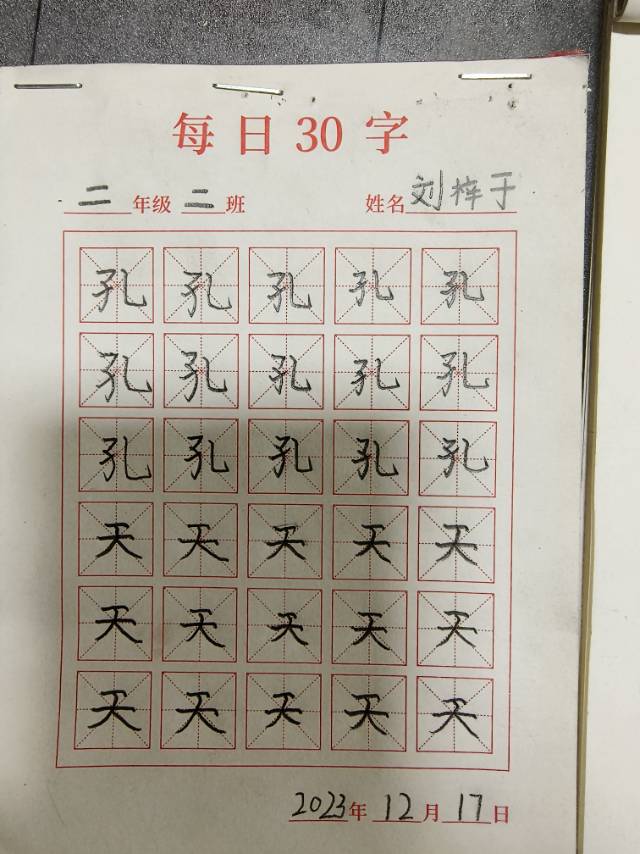 每日30字
二年级二班 姓名刘梓于
孔孔孔孔孔
孔孔孔孔孔
孔孔孔孔孔
天天天天天
天天天天天
天天天天天
2023年12月17日